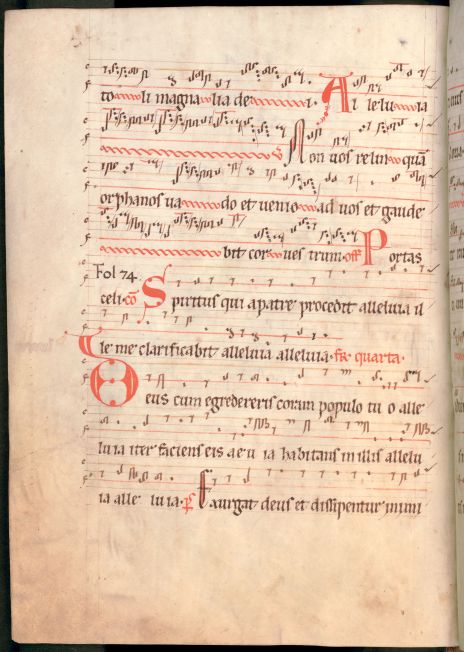 to li magna lia de i. Al le lu ia
Non vos relin quā
orphanos va do et venio ad vos et gaude
bit cor ves trum. off Portas
Fol 74.
celi. cō Spiritus qui a patre procedit alleluia il
le me clarificabit alleluia alleluia. fr quarta.
Deus cum egredereris coram populo tu o alle
lu ia iter faciens eis ae u ia habitans in illis allelu
ia alle lu ia. ps Exurgat deus et dissipentur inimi